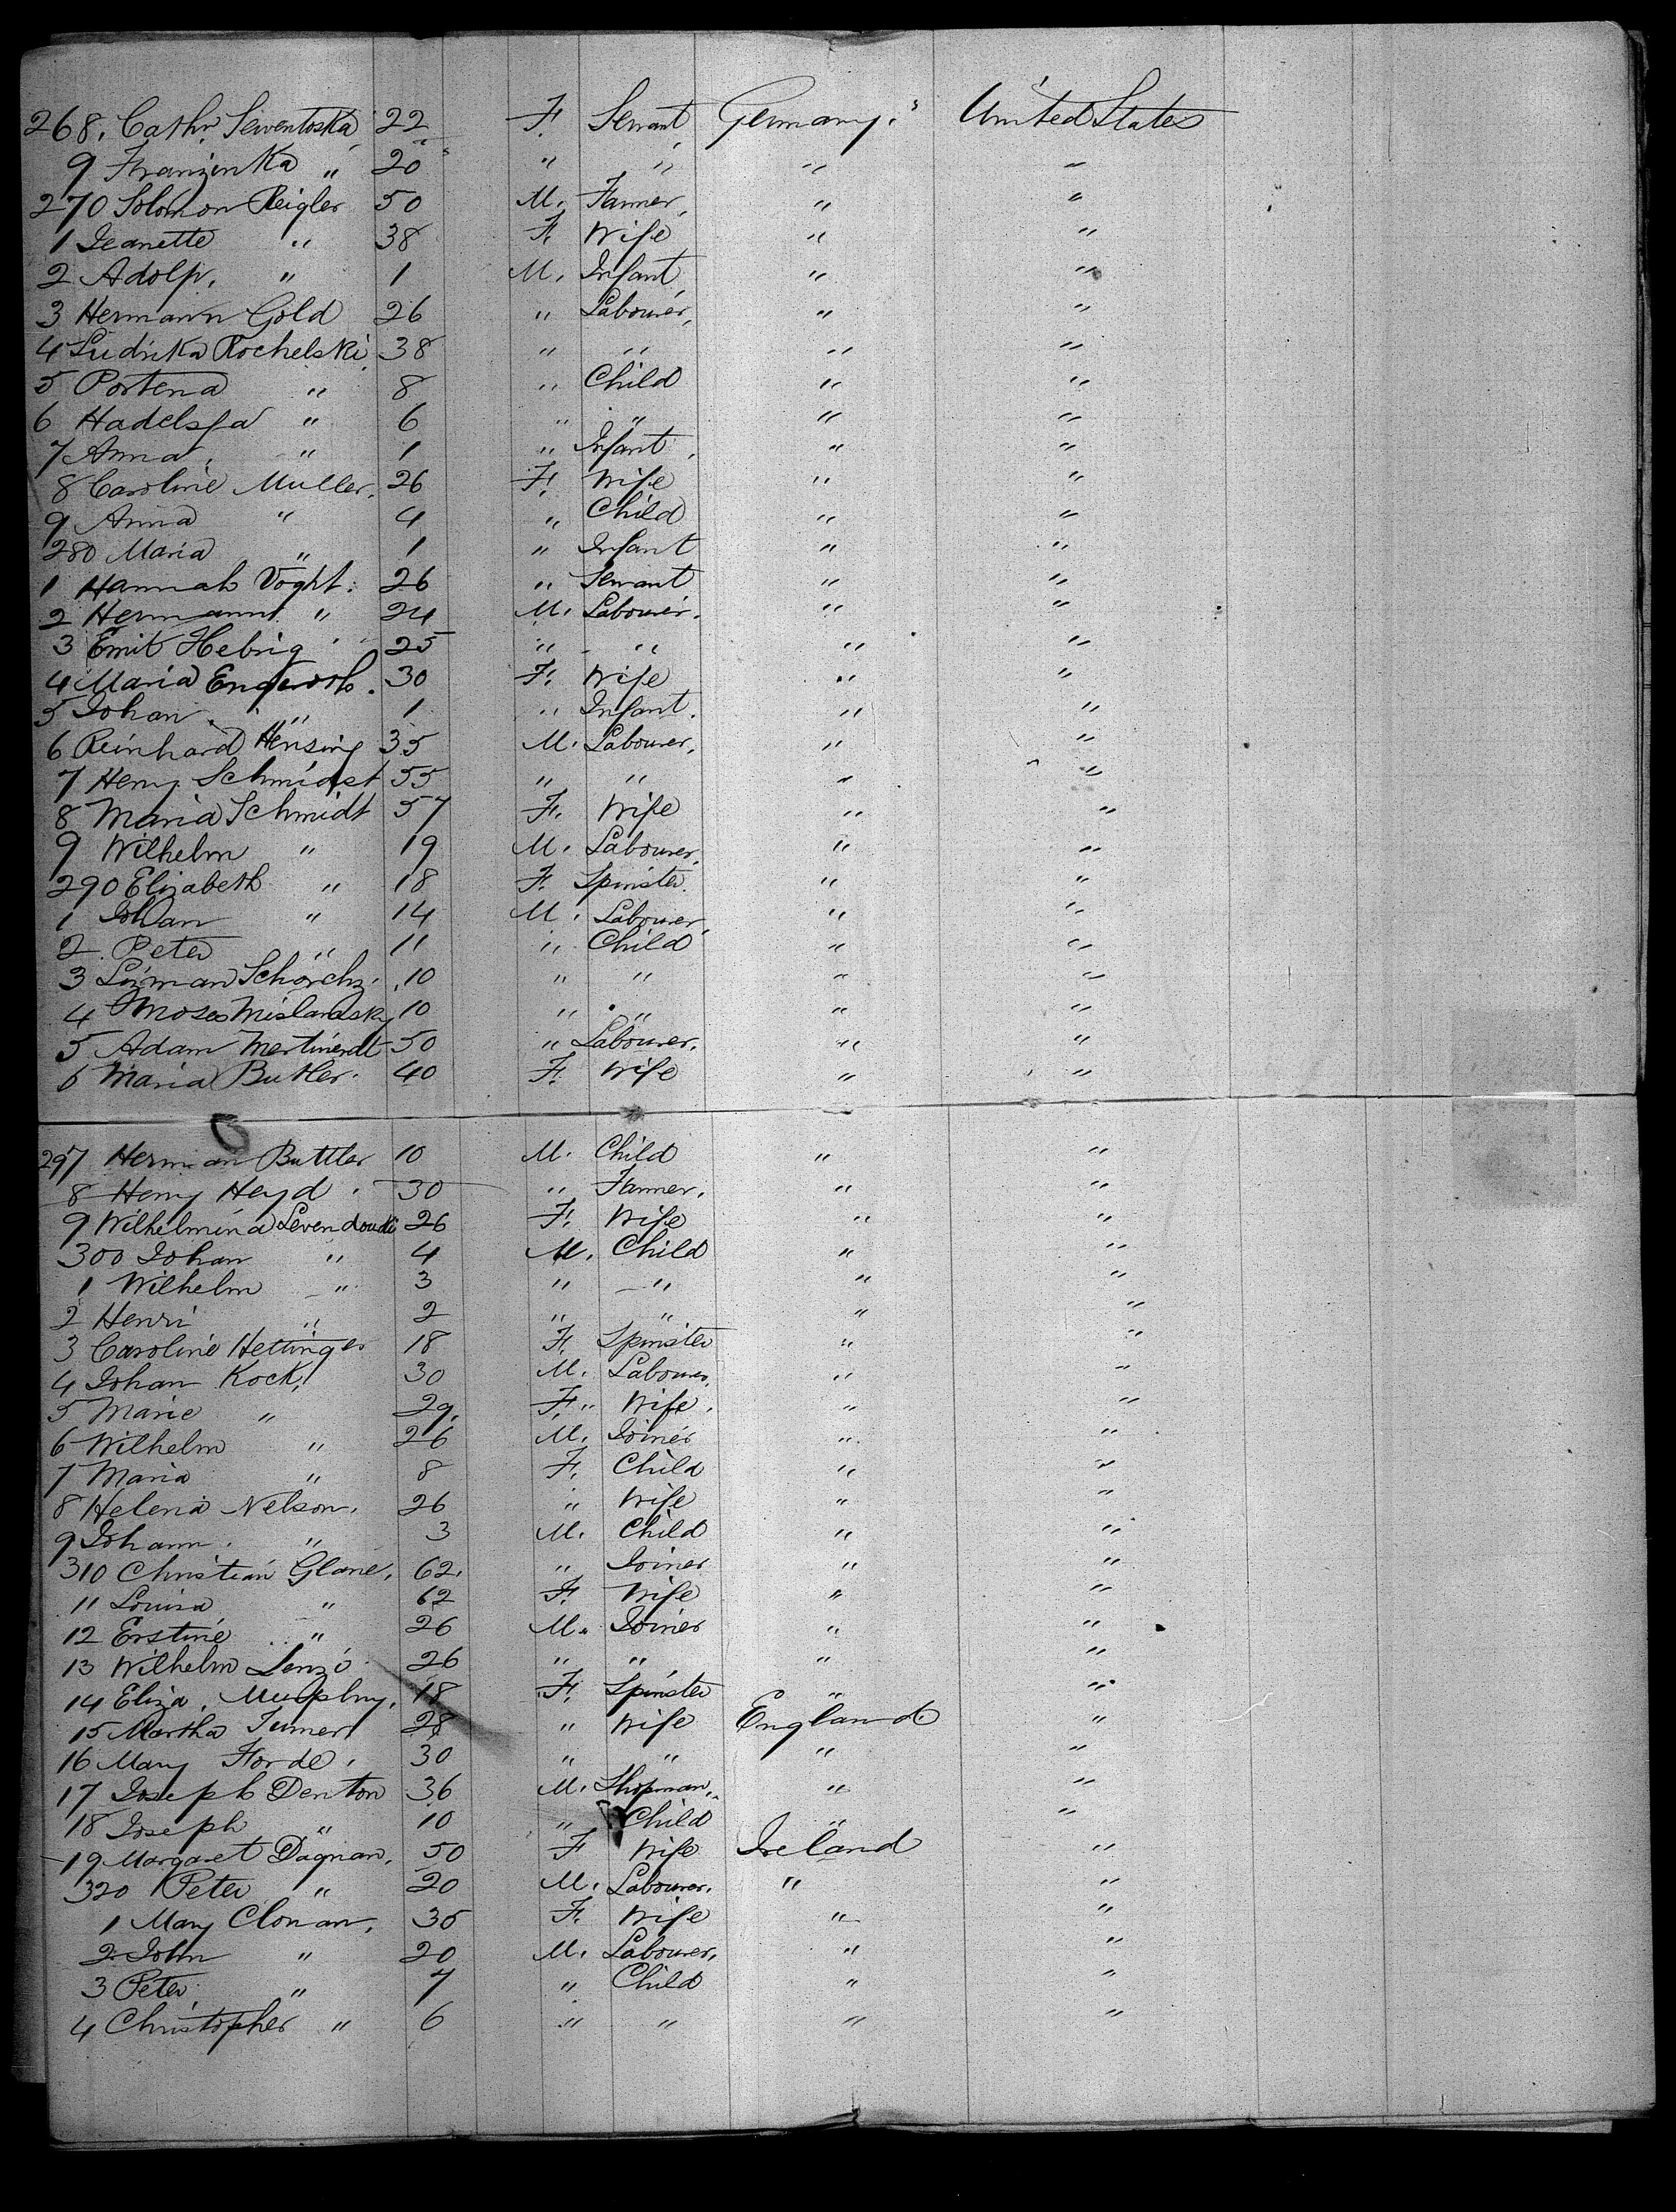 268. Cathr. Sewentoska 22 F. Servant Germany. United States
9 Franzinka " 20 " " " "
270 Solomon Reigler 50 M. Farmer, " "
1 Jeanette " 38 F. Wife " "
2 Adolp. " 1 M. Infant " "
3 Hermann Gold 26 " Labourer, " "
4 Ludrika Rochelski 38 " " " "
5 Portena " 8 " Child " "
6 Hadelsga " 6 " " " "
7 Anna " 1 " Infant " "
8 Caroline Muller. 26 F. Wife " "
9 Anna " 4 " Child " "
280 Maria " 1 " Infant " "
1 Hannah Voght. 26 " Servant " "
2 Hermann " 24 M. Labourer. " "
3 Emit Hebrig 25 " " " "
4 Maria 30 F. Wife " "
5 Johan " 1 " Infant. " "
6 Reinhard Hensing 35 M. Labourer, " "
7 Henry Schmidst 55 " " " "
8 Maria Schmidt 57 F. Wife " "
9 Wilhelm " 19 M. Labourer, " "
290 Elizabeth " 18 F. Spinster. " "
1 Johan " 14 M. Labourer, " "
2. Peter " 11 " Child " "
3 Liman Schorchz. 10 " " " "
4 Moses Mislandsky 10 " " " "
5 Adam Mertinendt 50 " Labourer. " "
6 Maria Butler. 40 F. Wife " "
297 Herman Buttler 10 M. Child " "
8 Henry Heyd. 30 " Farmer. " "
9 Wilhelmina Levendouski 26 F. Wife " "
300 Johan " 4 M. Child " "
1 Wilhelm " 3 " " " "
2 Henri " 2 " " " "
3 Caroline Hettinger 18 F. Spinster " "
4 Johan Kock, 30 M. Labourer, " "
5 Marie " 29. F. " Wife. " "
6 Wilhelm " 26 M. Joiner " "
7 Maria " 8 F. Child " "
8 Helena Nelson. 26 " Wife " "
9 Johann. " 3 M. Child " "
310 Christian Glane. 62. " Joiner " "
11 Louisa " 62 F. Wife " "
12 Erstine " 26 M. Joiner " "
13 Wilhelm Lenzo 26 " " " "
14 Eliza. Murphy. 18 F. Spinster " "
15 Martha Turner 28 " Wife England "
16 Mary Forde. 30 " " " "
17 Joseph Denton 36 M. Shopman, " "
18 Joseph " 10 " Child " "
19 Margaret Dagnan. 50 F Wife Ireland "
320 Peter " 20 M. Labourer. " "
1 Mary Clonan, 35 F. Wife " "
2 John " 20 M. Labourer, " "
3 Peter " 7 " Child " "
4 Christopher " 6 " " " "